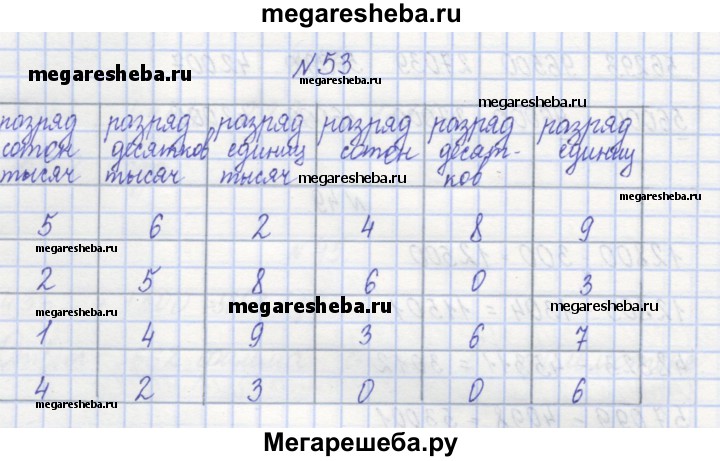 megaresheba.ru
№53
megaresheba.ru
megaresheba.ru
разряд разряд разряд разряд разряд разряд
сотен десятков единиц сотен десят- единиц
тысяч тысяч тысяч ков
megaresheba.ru
megaresheba.ru
5 6 2 4 8 9
megaresheba.ru
megaresheba.ru
2 5 8 6 0 3
megaresheba.ru
megaresheba.ru
1 4 9 3 6 7
4 2 3 0 0 6
megaresheba.ru
megaresheba.ru
Мегарешеба.ру